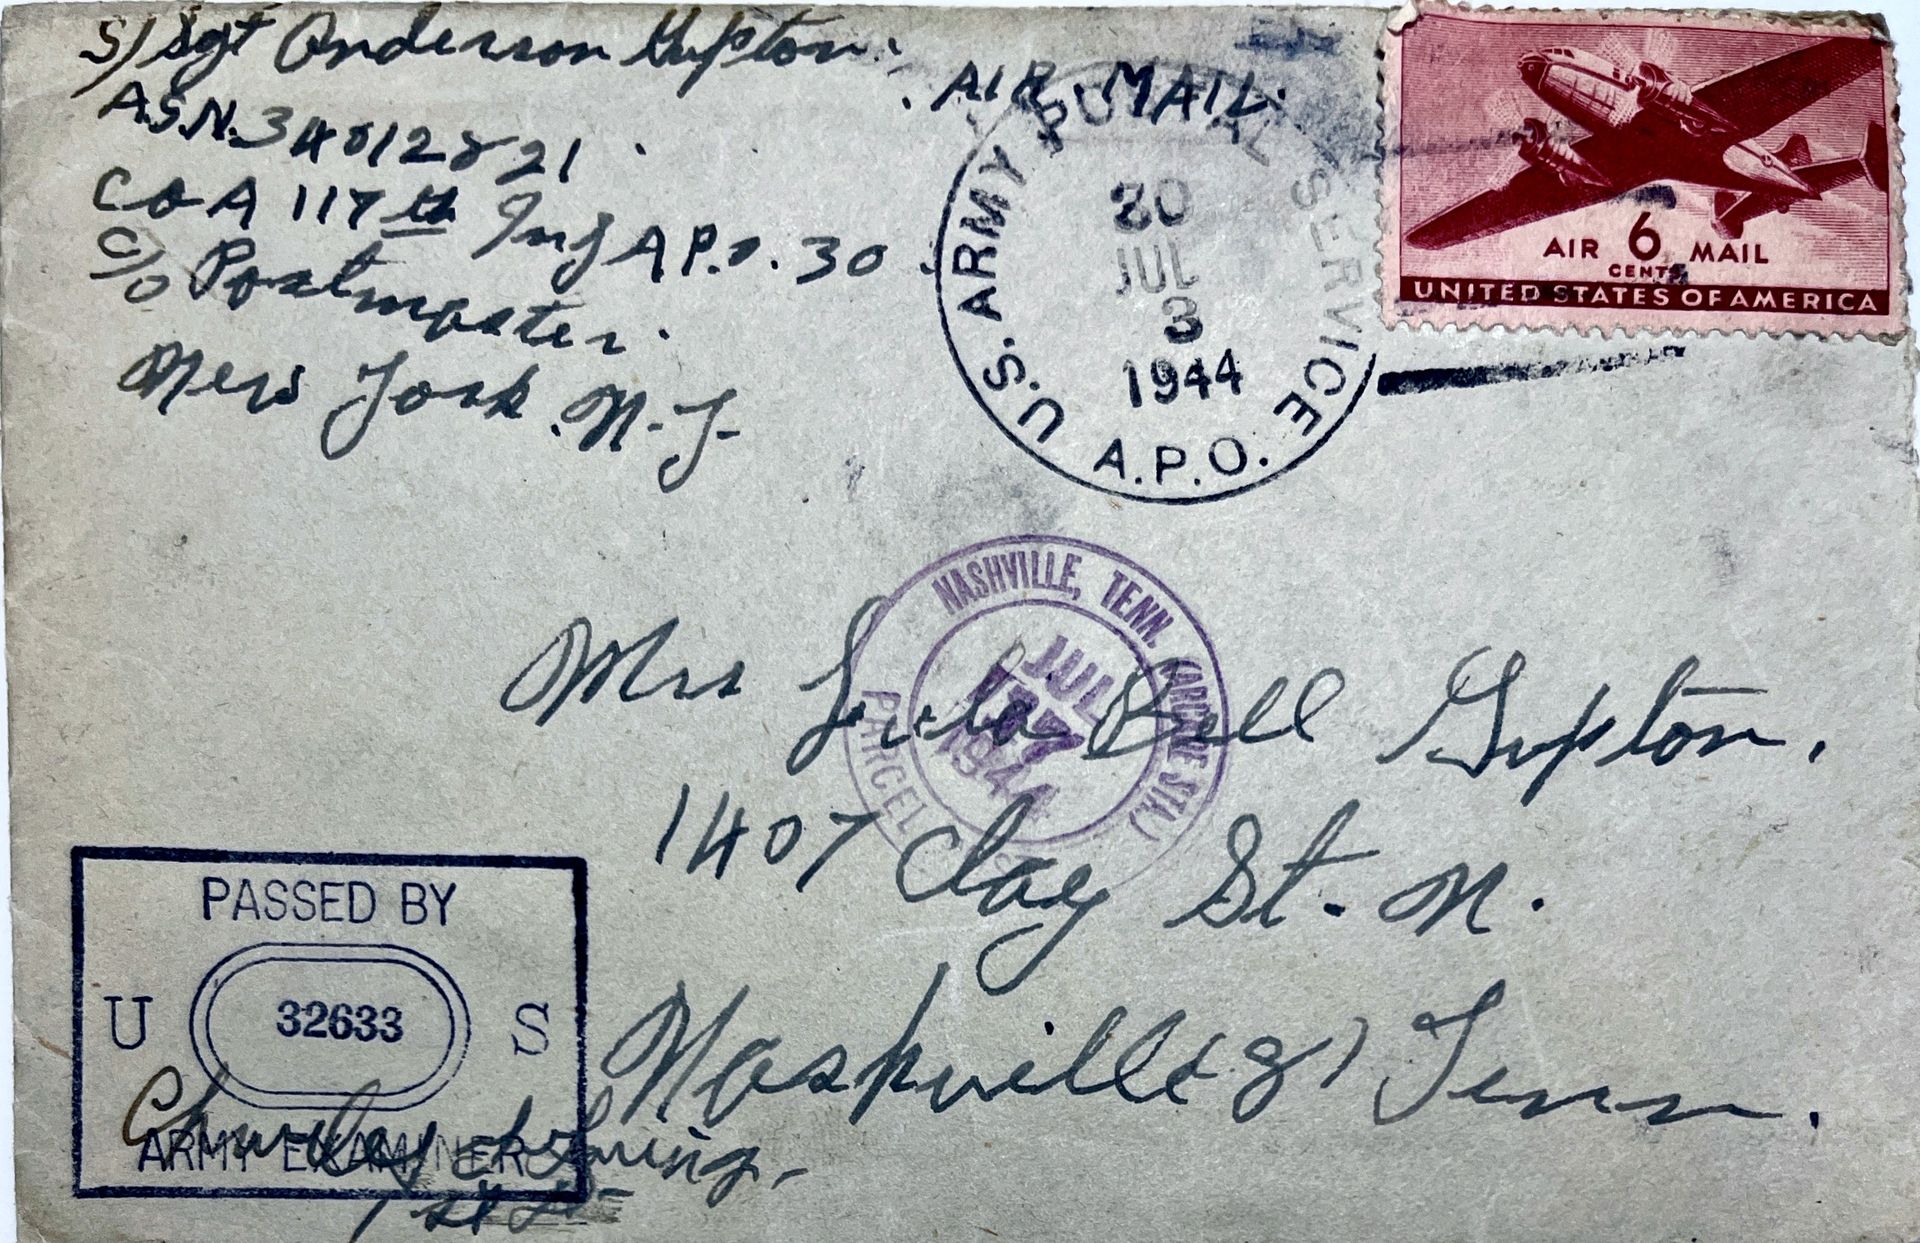 S/Sgt Anderson Gupton.
A.S.N. 34012821.
Co A 117th Inf A.P.O. 30.
c/o Postmaster.
New York. N.Y.
. AIR. MAIL.
U.S. ARMY POSTAL SERVICE
A.P.O.
JUL
3
1944
AIR 6 MAIL
CENTS
UNITED STATES OF AMERICA
NASHVILLE, TENN. (ARCADE STA.)
PARCEL
JUL
1944
Mrs Lula Bell Gupton,
1407 Clay St. N.
Nashville (8) Tenn.
PASSED BY
U 32633 S
ARMY EXAMINER
1st Lt